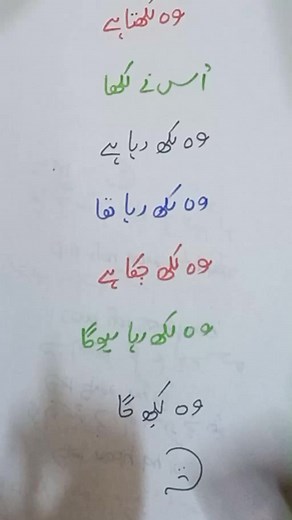 وہ لکھتا ہے
اُس نے لکھا
وہ لکھ رہا ہے
وہ لکھ رہا تھا
وہ لکھ چکا ہے
وہ لکھ رہا ہوگا
وہ لکھے گا